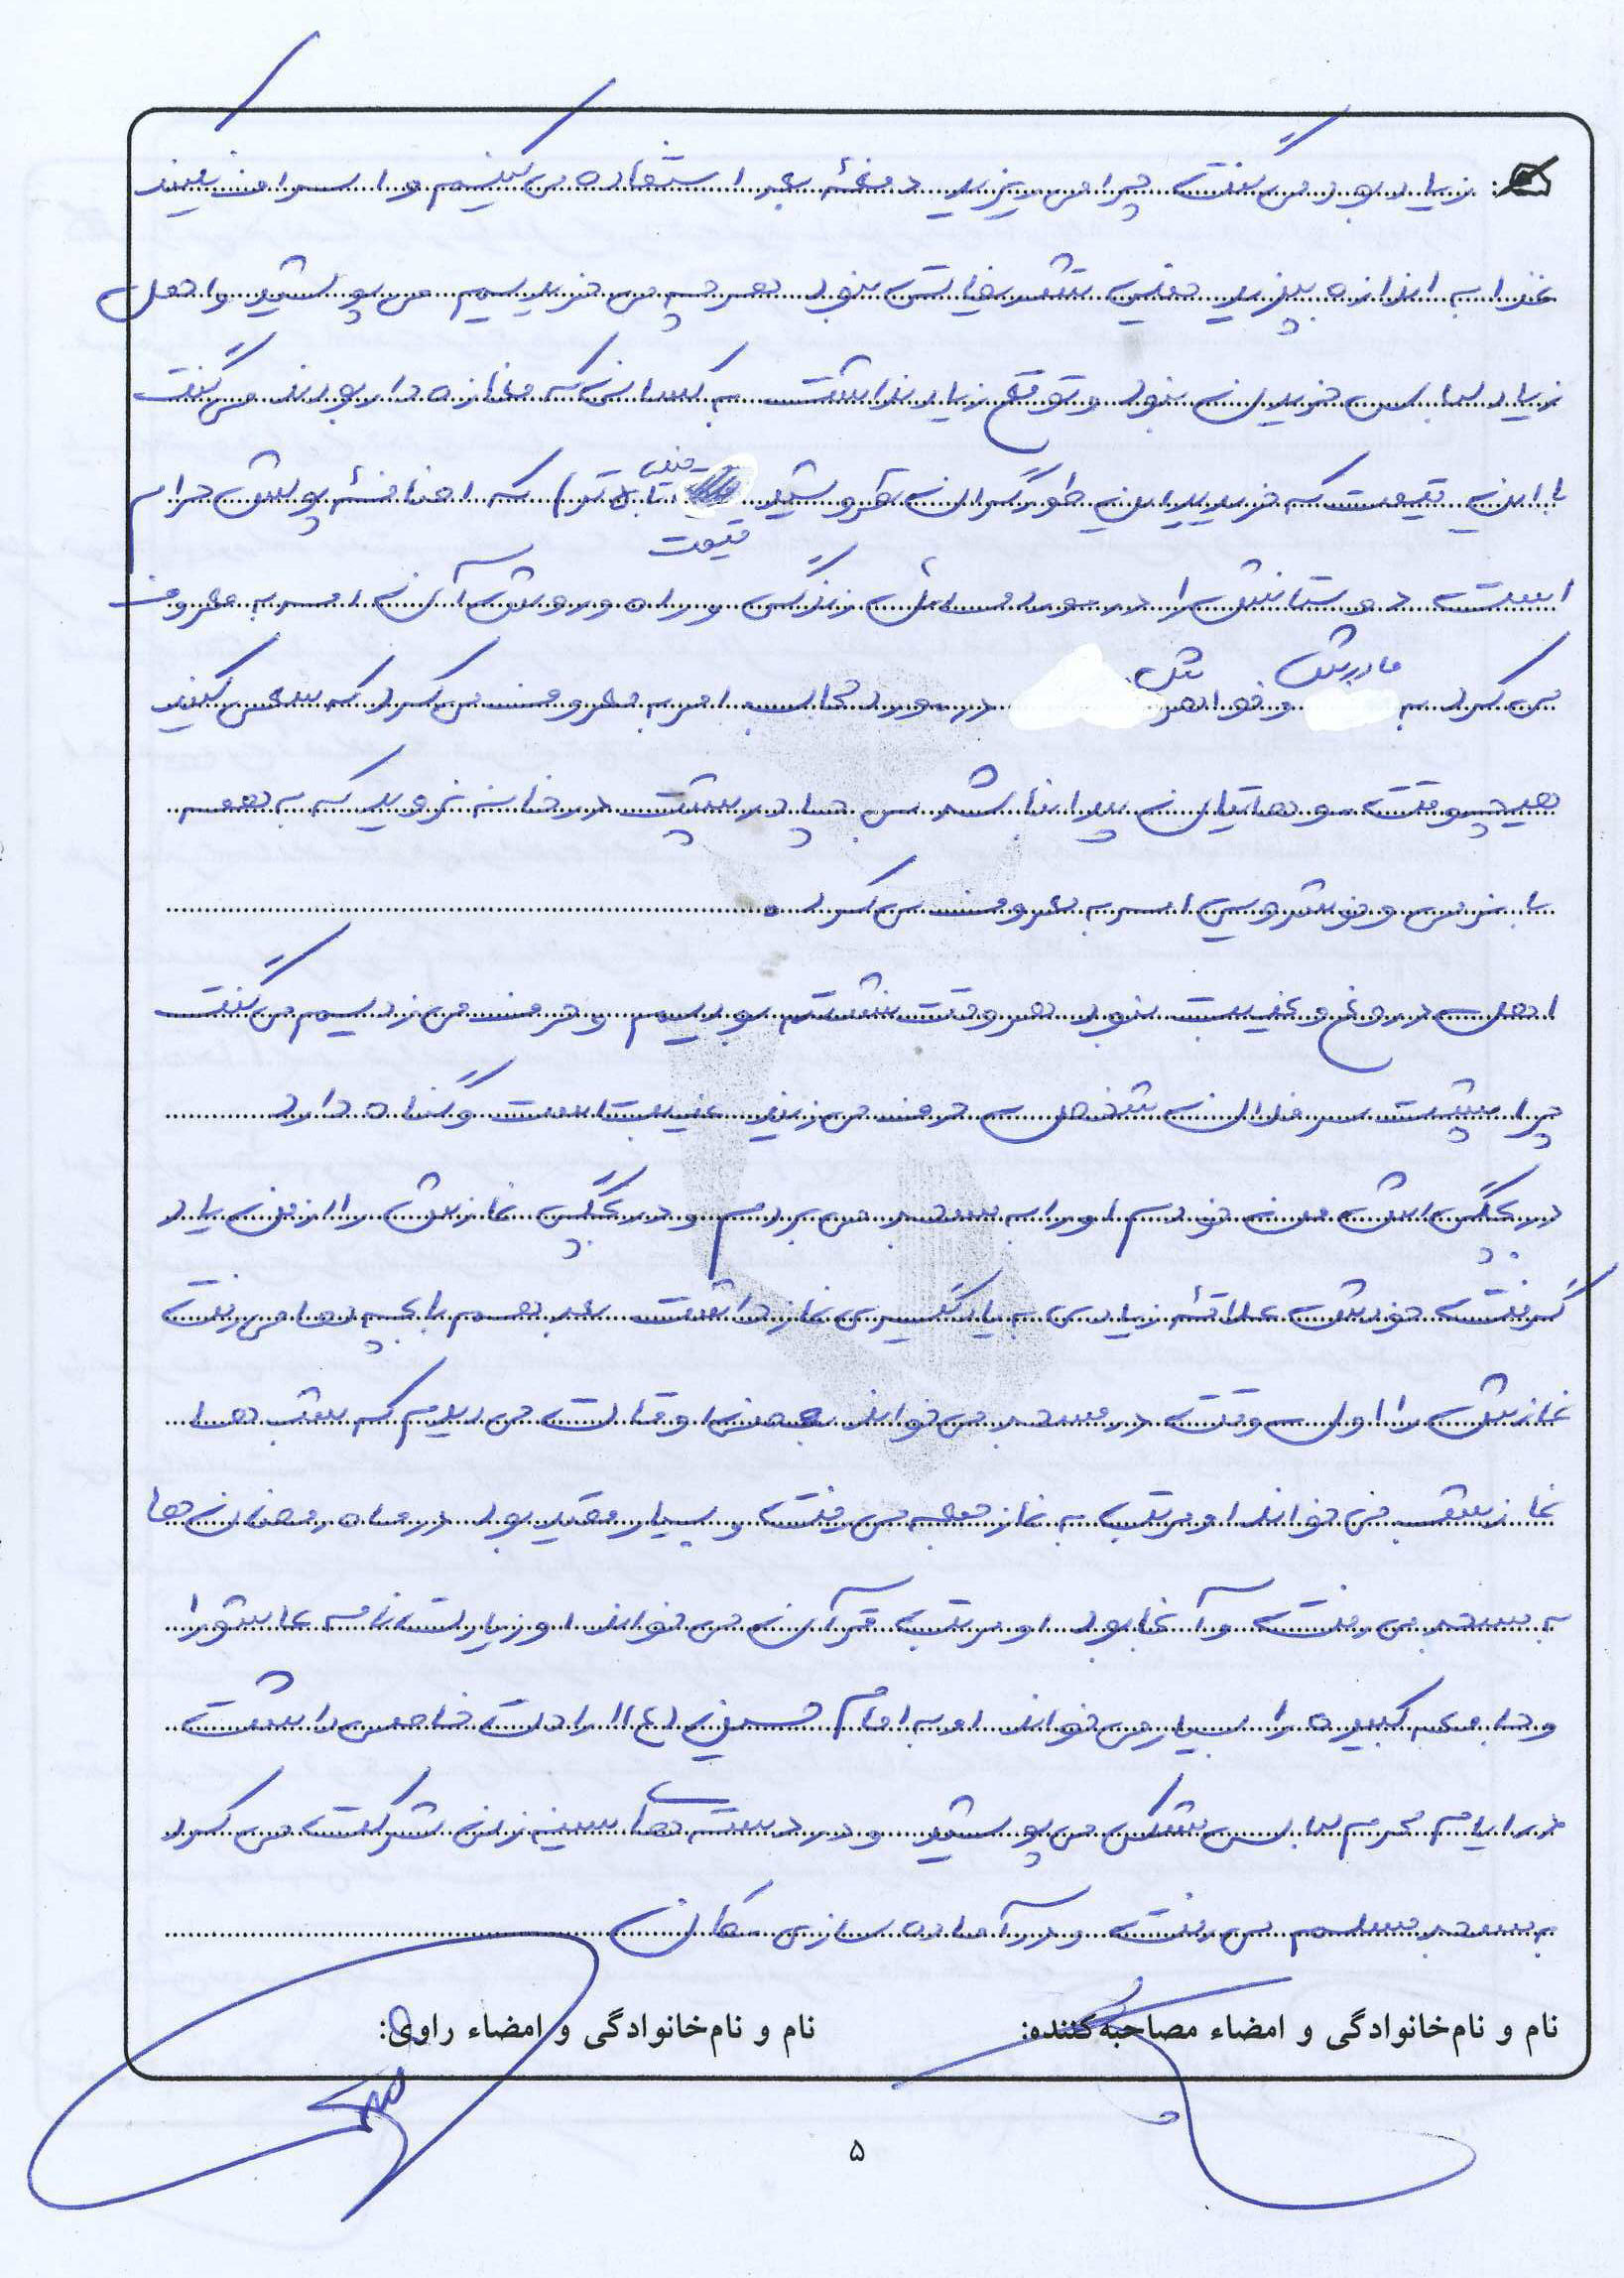 زیاد بود می گفت چرا می ریزید دفعه بعد استفاده می کنیم و اسراف نکنید
غذا به اندازه بپزید خیلی تشریفاتی نبود هرچه می خریدیم می پوشید و اهل
زیاد لباس خریدن نبود و توقع زیاد نداشت به کسانی که مغازه دار بودند می گفت
با این قیمت که خریدید این طور گران نفروشید خیلی قیمت که اضافه پولش حرام
است دوستانش را در مورد مسائل زندگی و راه و روش آن امر به معروف
می کرد به مادرش و خواهرش در مورد حجاب امر به معروف می کرد که سعی کنید
هیچوقت موهایتان پیدا نباشد بی چادر پشت در خانه نروید که به همه
با نرمی و خوشرویی امر به معروف می کرد.
اهل دروغ و غیبت نبود هر وقت نشسته بودیم و حرف می زدیم می گفت
چرا پشت سر فلان شخص حرف می زنید غیبت است و گناه دارد
در بچگی اش من خودم او را به مسجد می بردم و در بچگی نمازش را از من یاد
گرفت خودش علاقه زیادی به یادگیری نماز داشت بعد هم با بچه ها می رفت
نمازش را اول وقت در مسجد می خواند بعضی اوقات می دیدم که شب ها
نماز شب می خواند او مرتب به نماز جمعه می رفت و بسیار مقید بود در ماه رمضان ها
به مسجد می رفت و آنجا بود او مرتب قرآن می خواند او زیارت نامه عاشورا
و جامعه کبیره را بسیار می خواند او به امام حسین (ع) ارادت خاصی داشت
در ایام محرم لباس مشکی می پوشید و در دسته های سینه زنی شرکت می کرد
به مسجد مسلم می رفت و در آماده سازی مکان
نام و نام‌خانوادگی و امضاء مصاحبه‌کننده: نام و نام‌خانوادگی و امضاء راوی:
۵